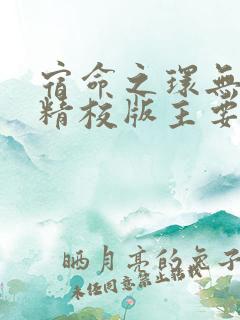 宿命之环無
精校版主要
晒月亮的兔子
未经同意禁止转载